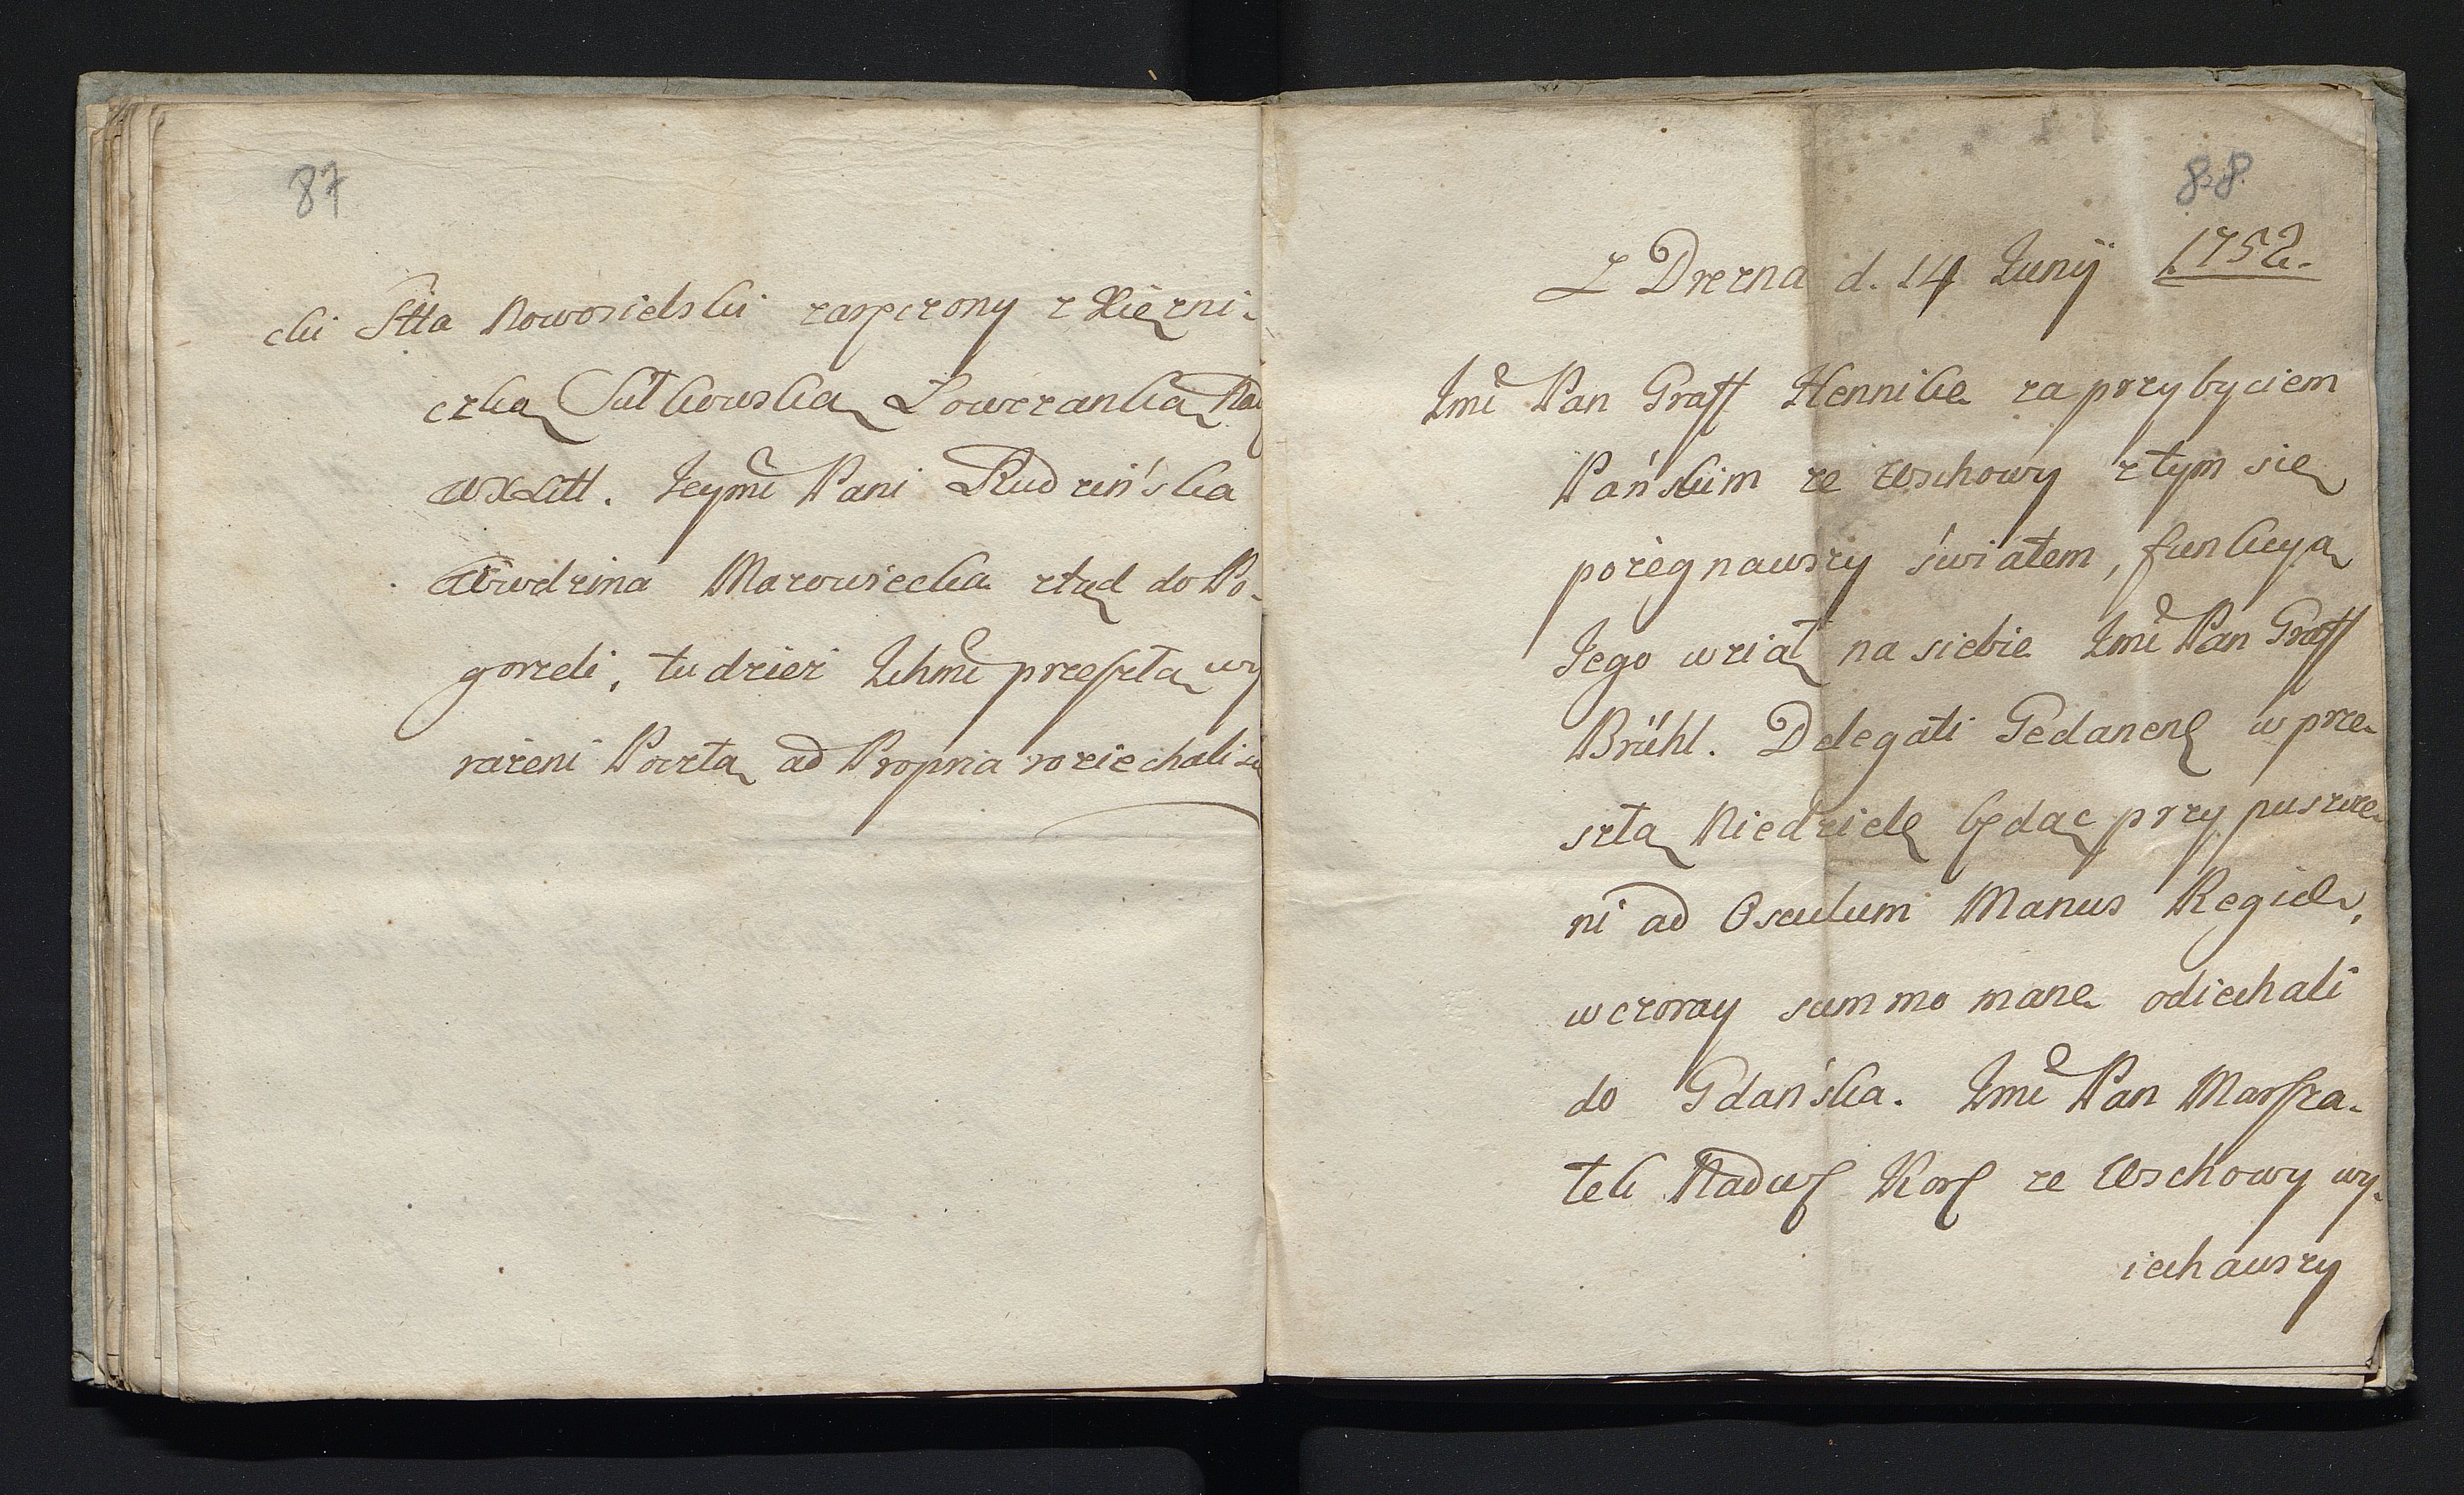 87
cki Stta Nowosielski zaręczony z Xięzni-
czką Sułkowską Łowczanką Nad
WXLitt. Jeymć Pani Rudzińska
Wwdzina Mazowiecka ztąd do Po-
gorzeli, tudzież Ichmć przeszłą wy
rażeni Pocztą ad Propria roziechali się
88
Z Drezna d. 14 Junij 1752.
Jmć Pan Graff Hennike za przybyciem
Pańskim ze Wschowy z tym się
pożegnawszy światem, funkcyą
Jego wziął na siebie Jmć Pan Graff
Brühl. Delegati Gedanens w prze-
szłą Niedzielę będąc przypuszcze-
ni ad Osculum Manus Regiæ,
wczoray summo mane odiechali
do Gdańska. Jmć Pan Marsza-
łek Nadw Kor ze Wschowy wy-
iechawszy